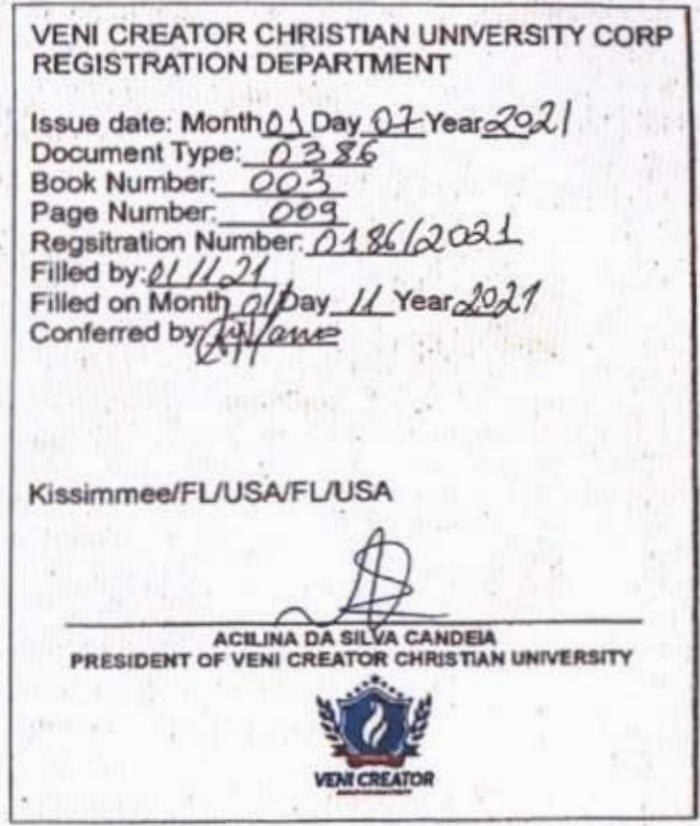 VENI CREATOR CHRISTIAN UNIVERSITY CORP
REGISTRATION DEPARTMENT
Issue date: Month 01 Day 07 Year 2021
Document Type: 0386
Book Number: 003
Page Number: 009
Regsitration Number: 0186/2021
Filled by: 01/11/21
Filled on Month 01 Day 11 Year 2021
Conferred by
Kissimmee/FL/USA/FL/USA
ACILINA DA SILVA CANDEIA
PRESIDENT OF VENI CREATOR CHRISTIAN UNIVERSITY
VENI CREATOR